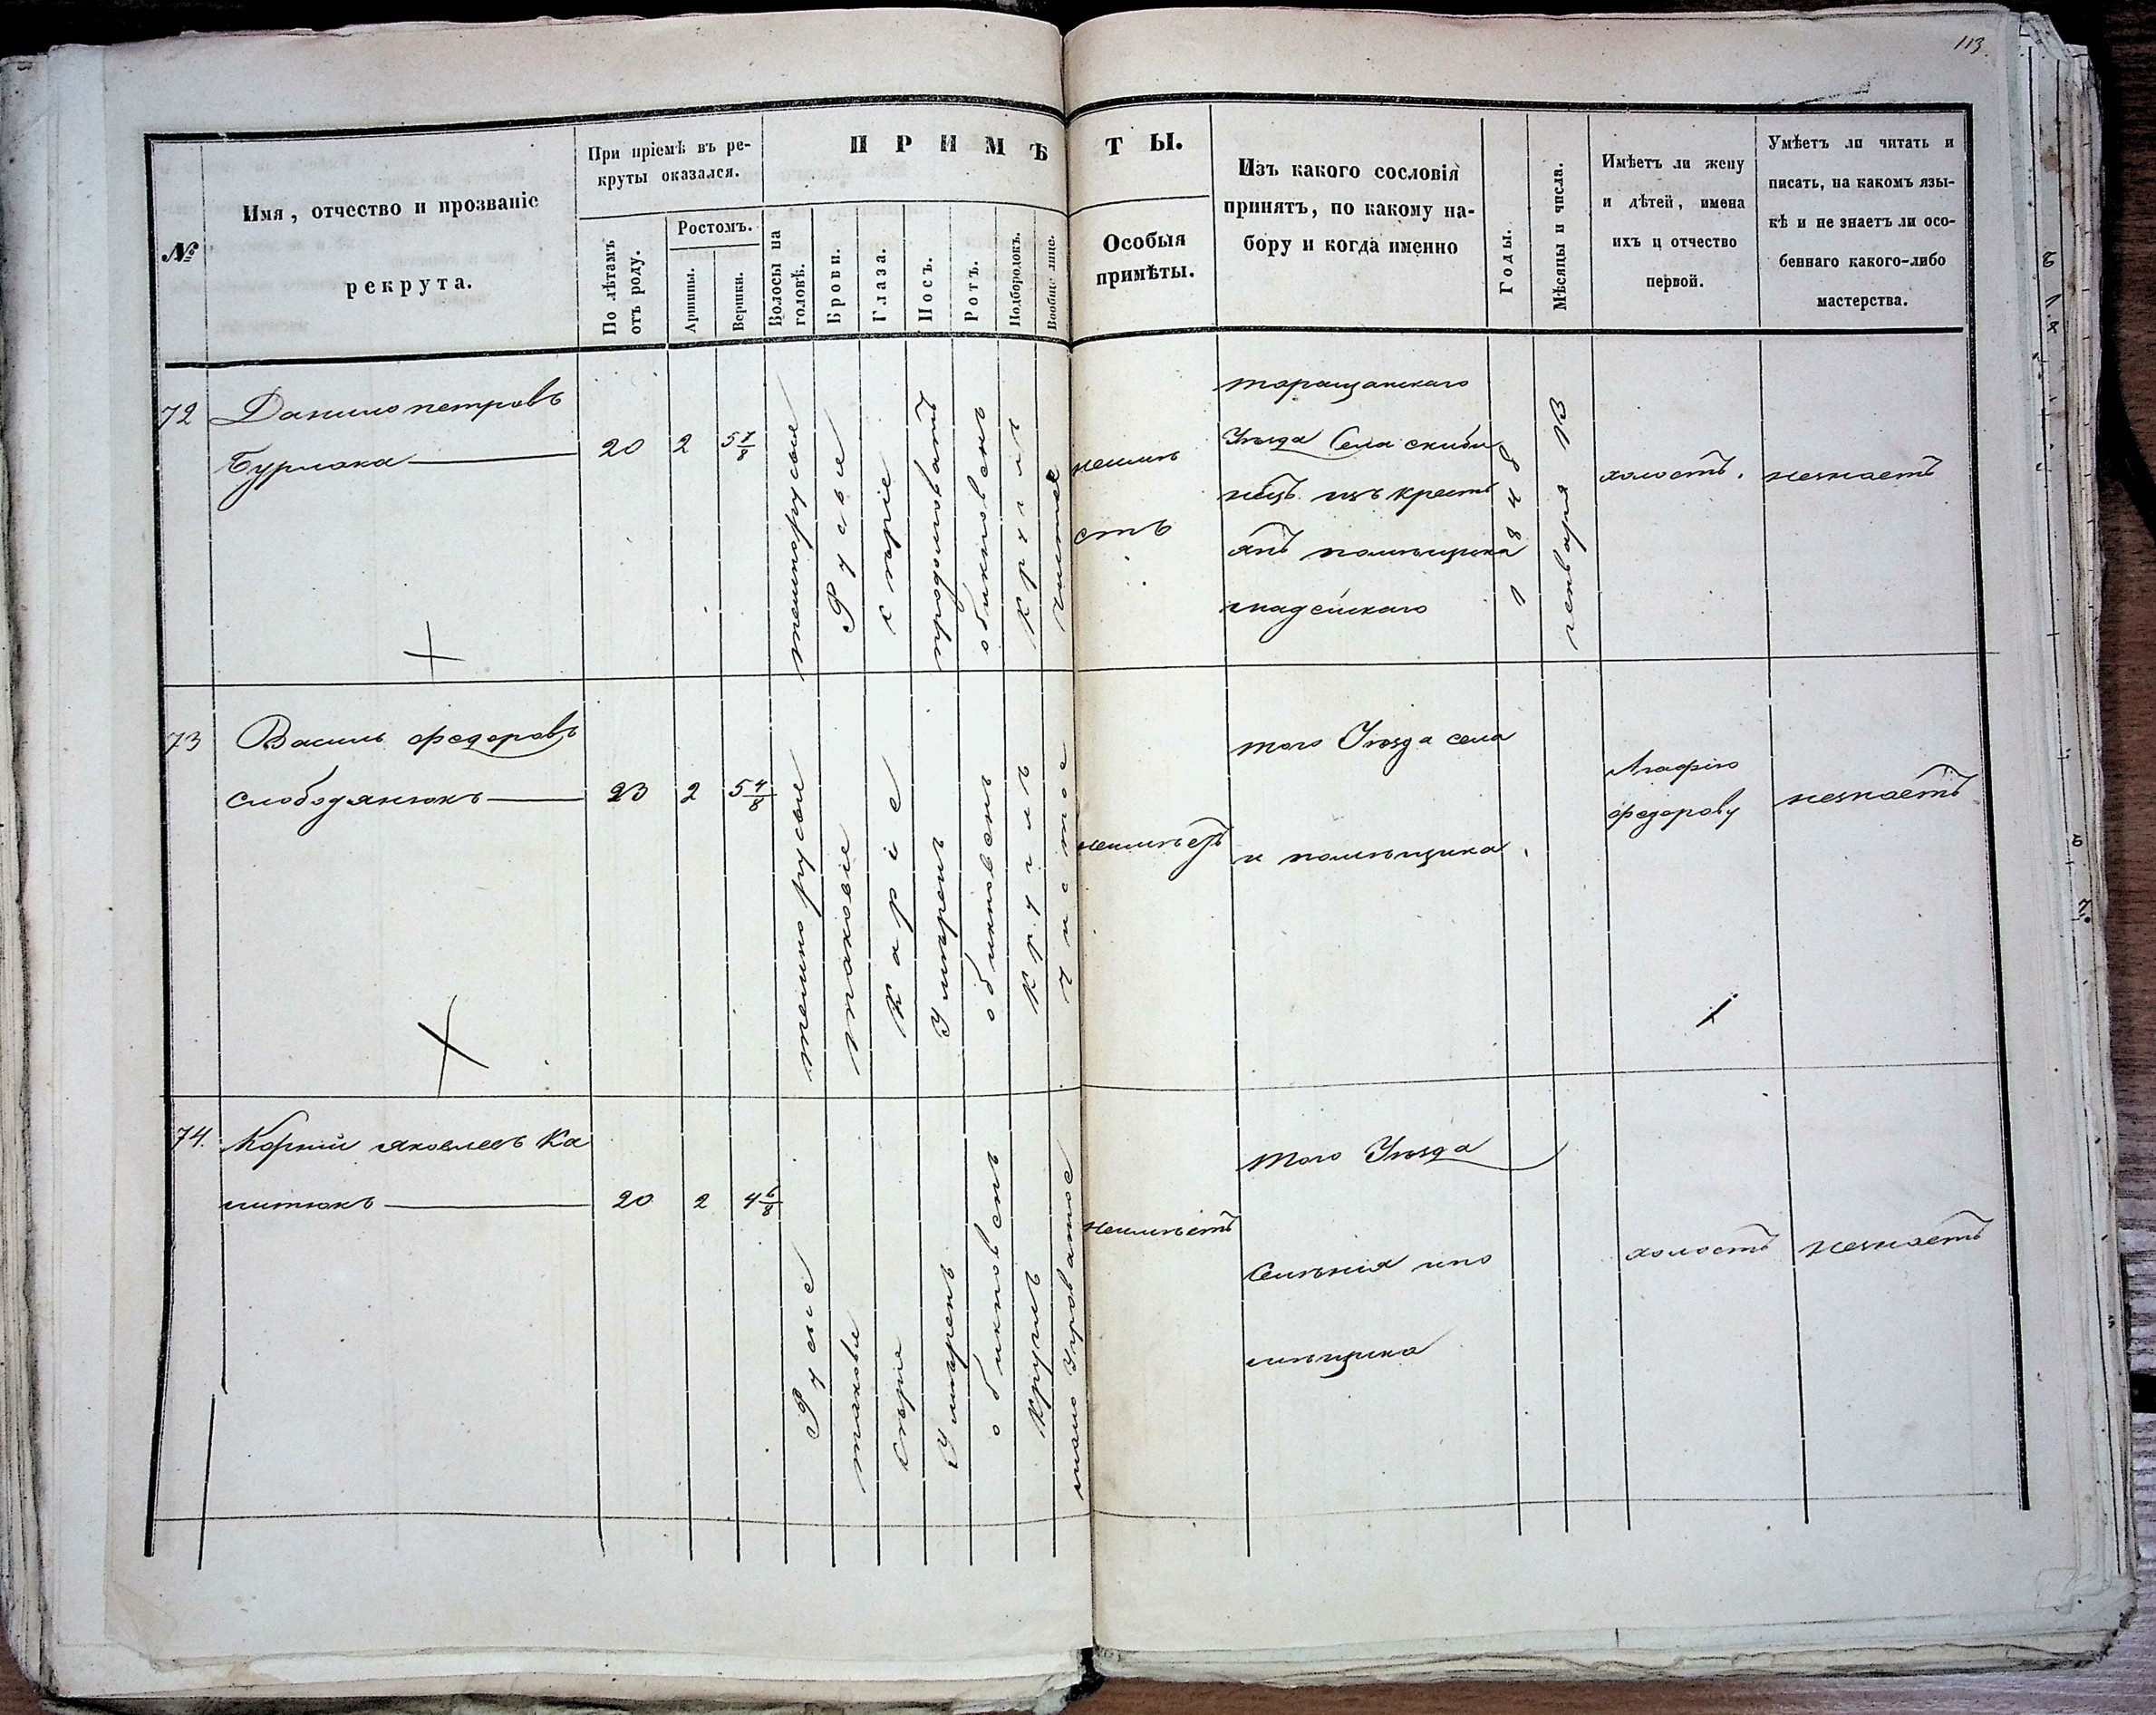 113
№
Имя, отчество и прозваніе
рекрута.
При пріемѣ въ ре-
круты оказался.
По лѣтамъ
отъ роду.
Ростомъ.
Аршины.
Вершки.
ПРИМѢТЫ.
Волосы на
головѣ.
Брови.
Глаза.
Носъ.
Ротъ.
Подбородокъ.
Вообще лице.
Особыя
примѣты.
Изъ какого сословія
принятъ, по какому на-
бору и когда именно
Годы.
Мѣсяцы и числа.
Имѣетъ ли жену
и дѣтей, имена
ихъ и отчество
первой.
Умѣетъ ли читать и
писать, на какомъ язы-
кѣ и не знаетъ ли осо-
беннаго какого-либо
мастерства.
72
Данило петровъ
Бурлака
20
2
5 7/8
темнорусые
Русые
сѣріе
продолговатъ
обикновенъ
Круглъ
чистое
неимѣ
етъ
таращанскаго
Уѣзда Села скиби
нецъ изъ крестъ
янъ помѣщика
1848
генваря 13
холостъ.
незнаетъ
73
Василь федоровъ
слободянюкъ
23
2
5 4/8
темно русые
таковіе
Каріе
Умѣренъ
обикновенъ
Круглъ
Чистое
неимѣетъ
того Уѣзда села
и помѣщика
Агафію
федорову
незнаетъ
74.
Корній яковлевъ Ка
литюкъ
20
2
4 6/8
Русые
таковые
Сѣріе
Умѣренъ
обикновенъ
Круглъ
неимѣетъ
того Уѣзда
Селенія и по
мѣщика
холостъ
незнаетъ